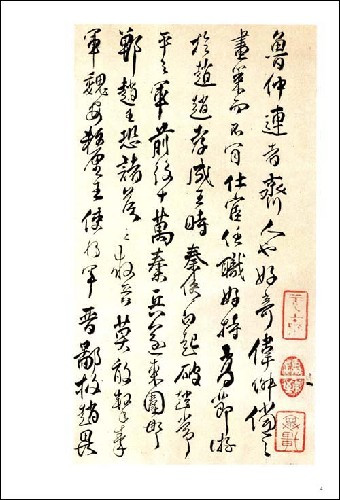 魯仲連者齊人也好奇偉俶儻之
畫策而不肯仕宦任職好持高節游
於趙趙孝成王時秦使白起破趙長
平之軍前後十萬秦兵遂東圍邯
鄲趙王恐諸侯之救兵莫敢擊秦
軍魏安釐王使將軍晉鄙救趙畏